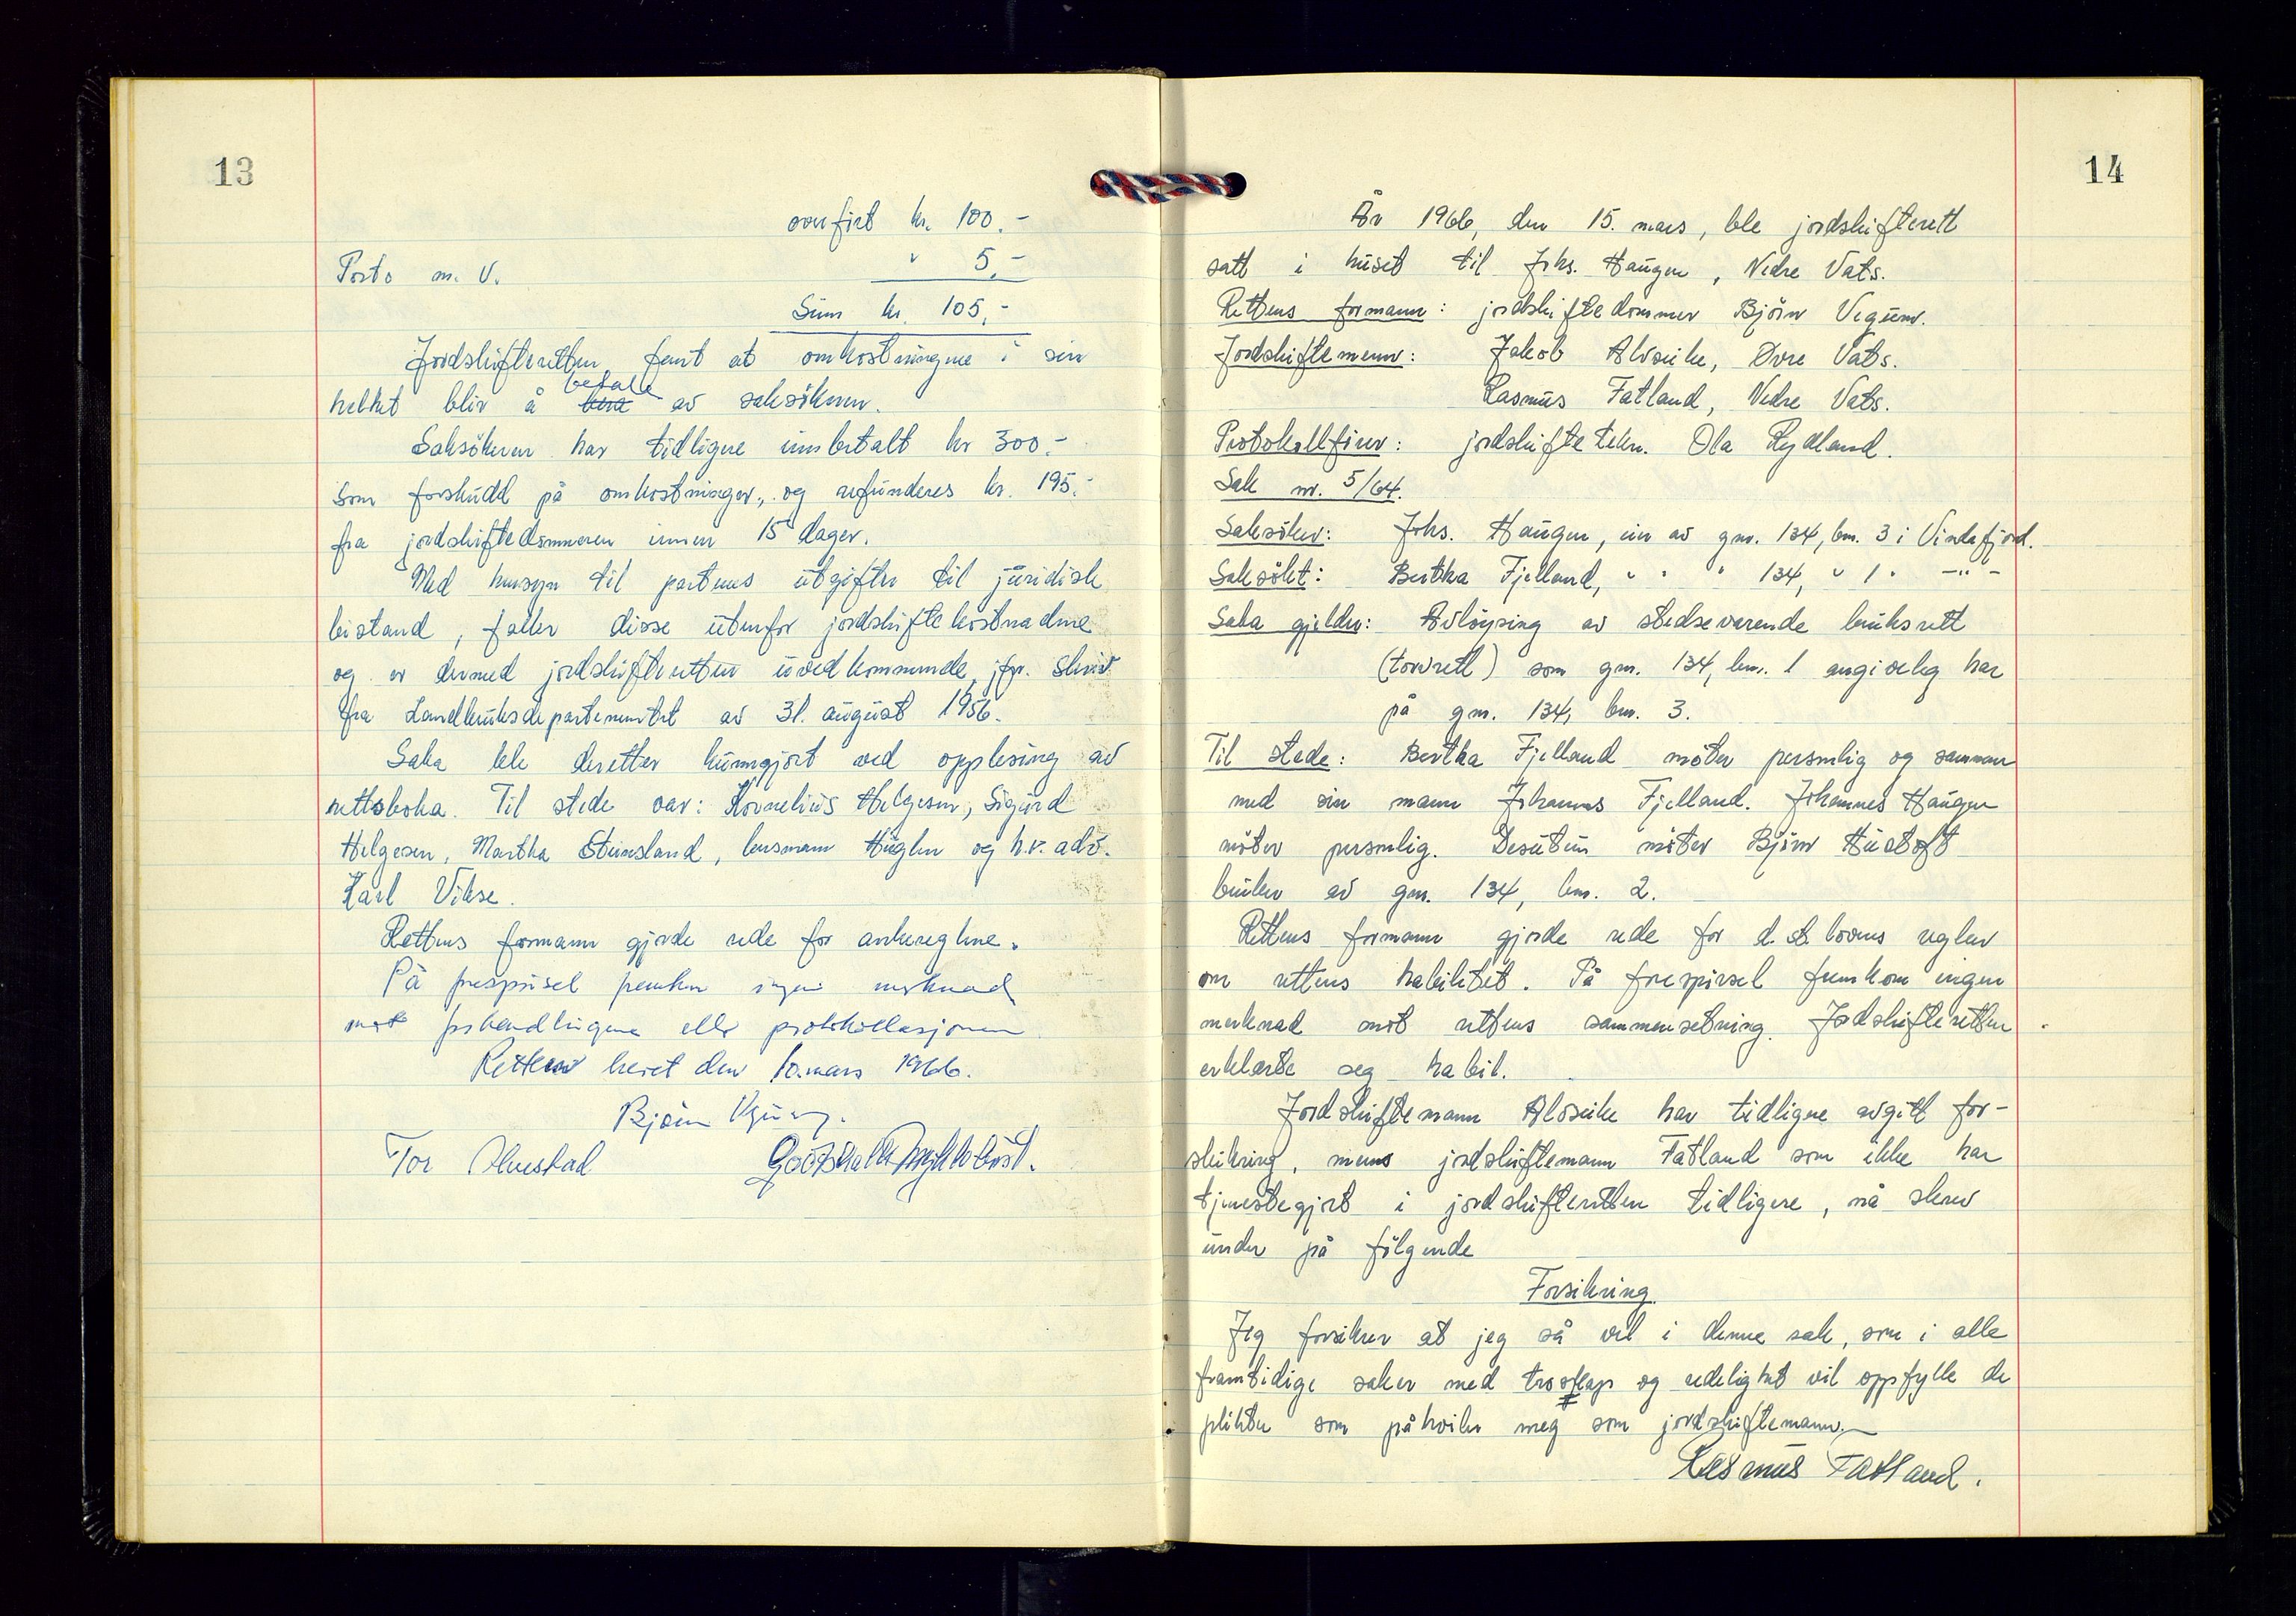 13
overført kr. 100.-
Porto m. v. " 5,-
Sum kr. 105,-
Jordskifteretten fant at omkostningene i sin
helhet blir å bære betale av saksökeren.
Saksökeren har tidligere innbetalt kr 300.-
som forskudd på omkostninger, og refunderes kr. 195.-
fra jordskiftedommeren innen 15 dager.
Med hensyn til partenes utgifter til juridisk
bistand, faller disse utenfor jordskiftekostnadene
og er dermed jordskifteretten uvedkommende, jfr. skriv
fra Landbruksdepartementet av 31. august 1956.
Saka ble deretter kunngjort ved opplesing av
rettsboka. Til stede var: Kornelius Helgesen, Sigurd
Helgesen, Martha Steinsland, lensmann Huglen og h.r. adv.
Karl Vikse.
Rettens formann gjorde rede for ankereglene.
På forespörsel fremkom ingen merknad
mot forhandlingene eller protokollasjonen
Retten hevet den 10. mars 1966.
Björn
Tor
14
År 1966, den 15. mars, ble jordskifterett
satt i huset til Johs. Haugen, Nedre Vats.
Rettens formann: jordskiftedommer Björn Vegum.
Jordskiftemenn: Jakob Alvseike, Övre Vats.
Rasmus Fatland, Nedre Vats.
Protokollförer: jordskiftetekn. Ola Rydland.
Sak nr. 5/64.
Saksöker: Johs. Haugen, eier av gnr. 134, bnr. 3 i Vindafjord.
Saksökt: Bertha Fjelland, " " " 134, " 1 " -"-
Saka gjelder: Avlöysing av stedsevarende bruksrett
(torvrett) som gnr. 134, bnr. 1 angivelig har
på gnr. 134, bnr. 3.
Til stede: Bertha Fjelland möter personlig og sammen
med sin mann Johannes Fjelland. Johannes Haugen
möter personlig. Desuten möter Björn Hustoft
bruker av gnr. 134, bnr. 2.
Rettens formann gjorde rede for d. st. lovens regler
om rettens habilitet. På forespörsel fremkom ingen
merknad mot rettens sammensetning. Jordskifteretten
erklærte seg habil.
Jordskiftemann Alvseike har tidligere avgitt for-
sikring, mens jordskiftemann Fatland som ikke har
tjenestegjort i jordskifteretten tidligere, nå skrev
under på fölgende
Forsikring
Jeg forsikrer at jeg så vel i denne sak, som i alle
framtidige saker med troskap og redelighet vil oppfylle de
plikter som påhviler meg som jordskiftemann.
Rasmus Fatland.